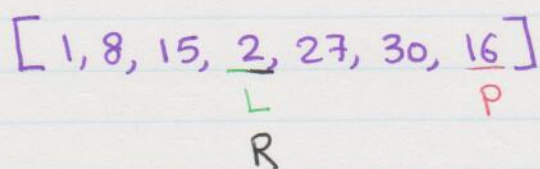 [1, 8, 15, 2, 27, 30, 16]
L P
R